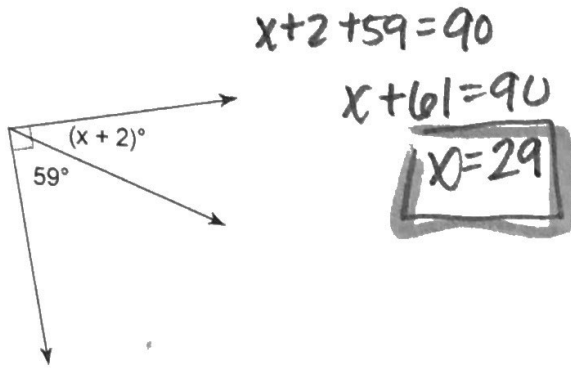 x+2+59=90
x+61=90
x=29
(x + 2)°
59°